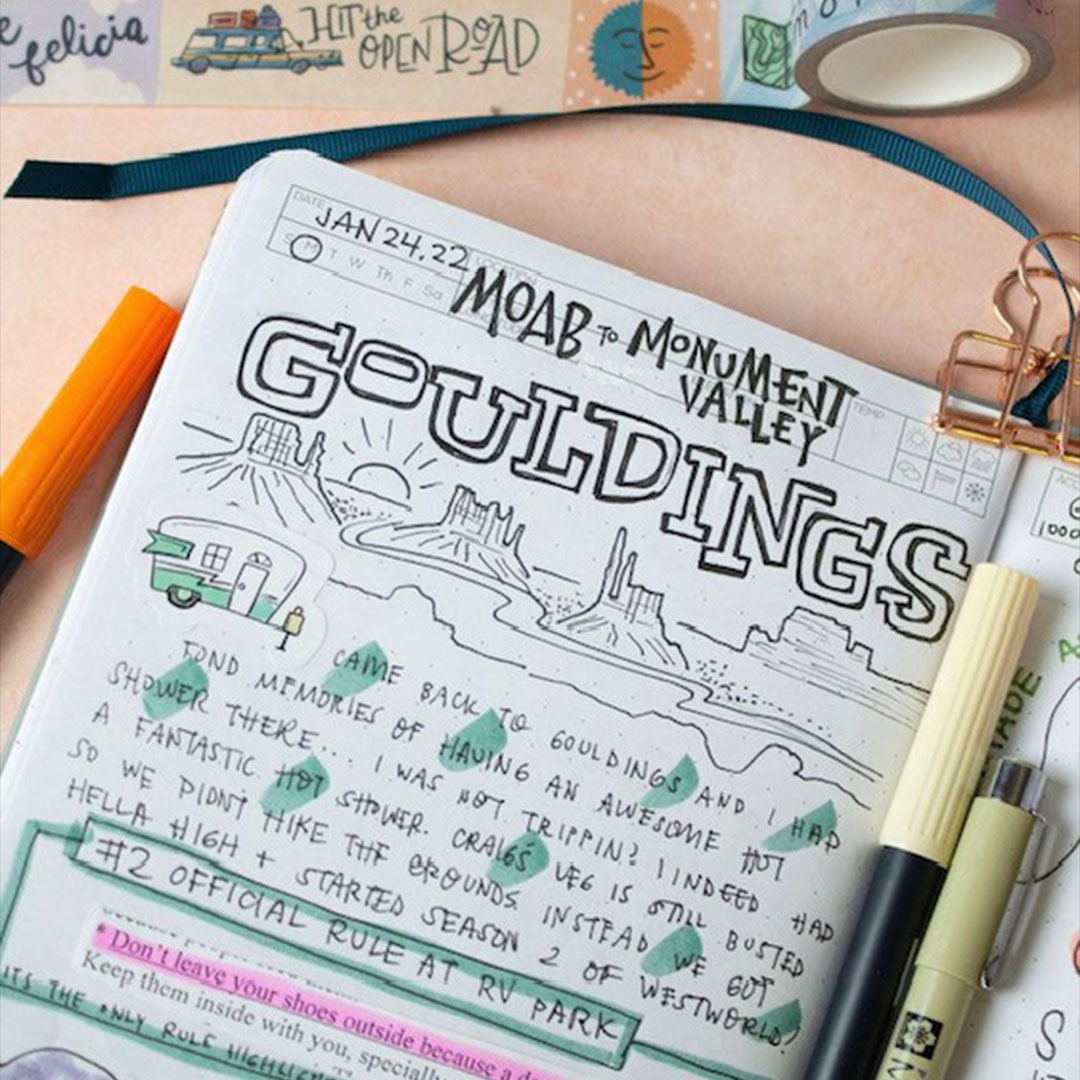 felicia
HIT the
OPEN ROAD
DATE
JAN 24, 22
S M T W Th F Sa
LOCATION
MOAB TO MONUMENT
VALLEY
TEMP
GOULDINGS
CAME BACK TO GOULDINGS AND I HAD
FOND MEMORIES OF HAVING AN AWESOME HOT
SHOWER THERE... I WAS NOT TRIPPIN? I INDEED HAD
A FANTASTIC HOT SHOWER. CRAIGS LEG IS STILL BUSTED
SO WE DIDNT HIKE THE GROUNDS. INSTEAD WE GOT
HELLA HIGH + STARTED SEASON 2 OF WESTWORLD!
#2 OFFICIAL RULE AT RV PARK
* Don't leave your shoes outside because a
Keep them inside with you,
IT'S THE ONLY RULE